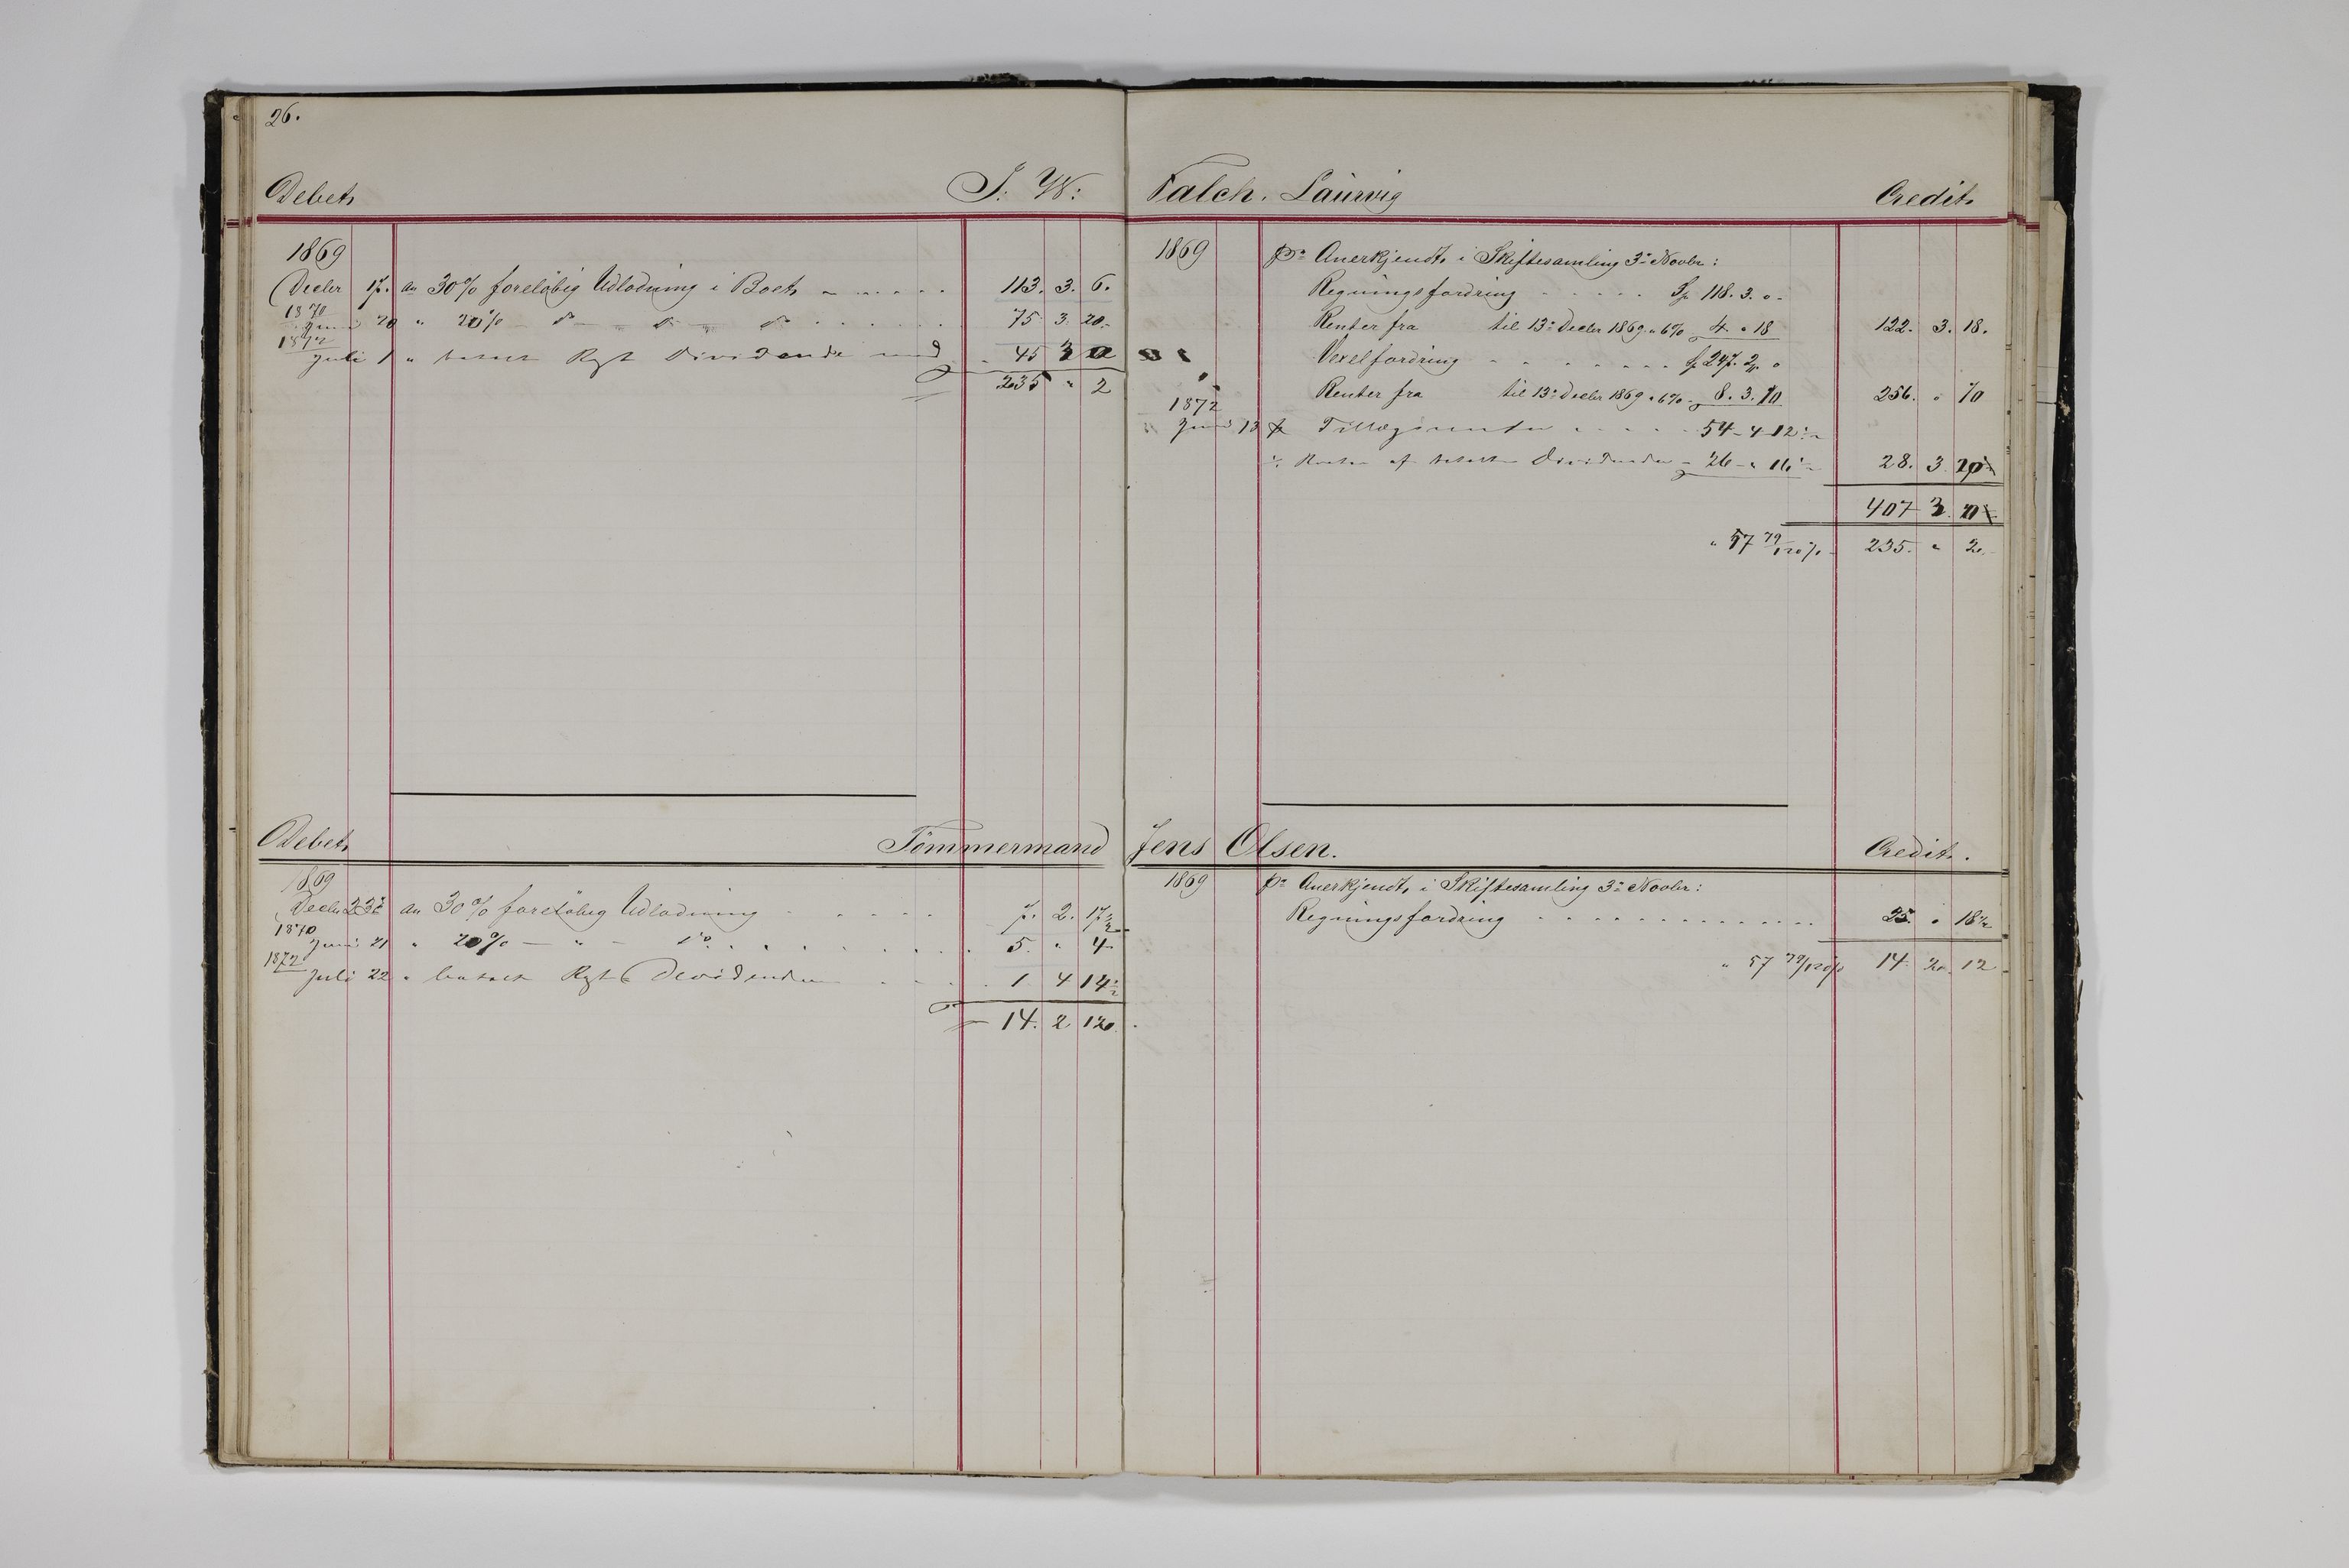 26.
Debet
J. W:
1869
Decbr 17. an 30% foreløbig Udlodning i Boet 113. 3. 6.
1870
Juni 20 " 20% - do - do - do 75. 3. 20.
1872
Juli 1 " betalt Dividende med 45 3
235 " 2
Falch. Laurvig
Credit.
1869 Pr Anerkjendt i Skiftesamling 3die Novbr:
Regningsfordring Sp 118. 3. 0.
Renter fra til 13de Decbr 1869 a 6% 4. " 18 122. 3. 18.
Vexelfordring Sp 247. 2. 0
Renter fra til 13de Decbr 1869 a 6% 8. 3. 10 256. " 10
1872
Juni 13 Tillægsrenter 54-4-12½
÷ Renter af betalte Dividender - 26 - " 16½ 28. 3. 20
407 3.
" 57 79/120% 235. " 2.
Debet
Tömmermand
1869
Decbr 23 an 30% foreløbig Udlodning 7. 2. 17½
1870
Juni 21 " 20% - " - do 5. " 4
1872
Juli 22 " betalt Dividende 1 4 14½
14. 2 12
Jens Olsen.
Credit.
1869 Pr Anerkjendt i Skiftesamling 3die Novbr:
Regningsfordring 25. " 18½
" 57 79/120% 14. 2. 12